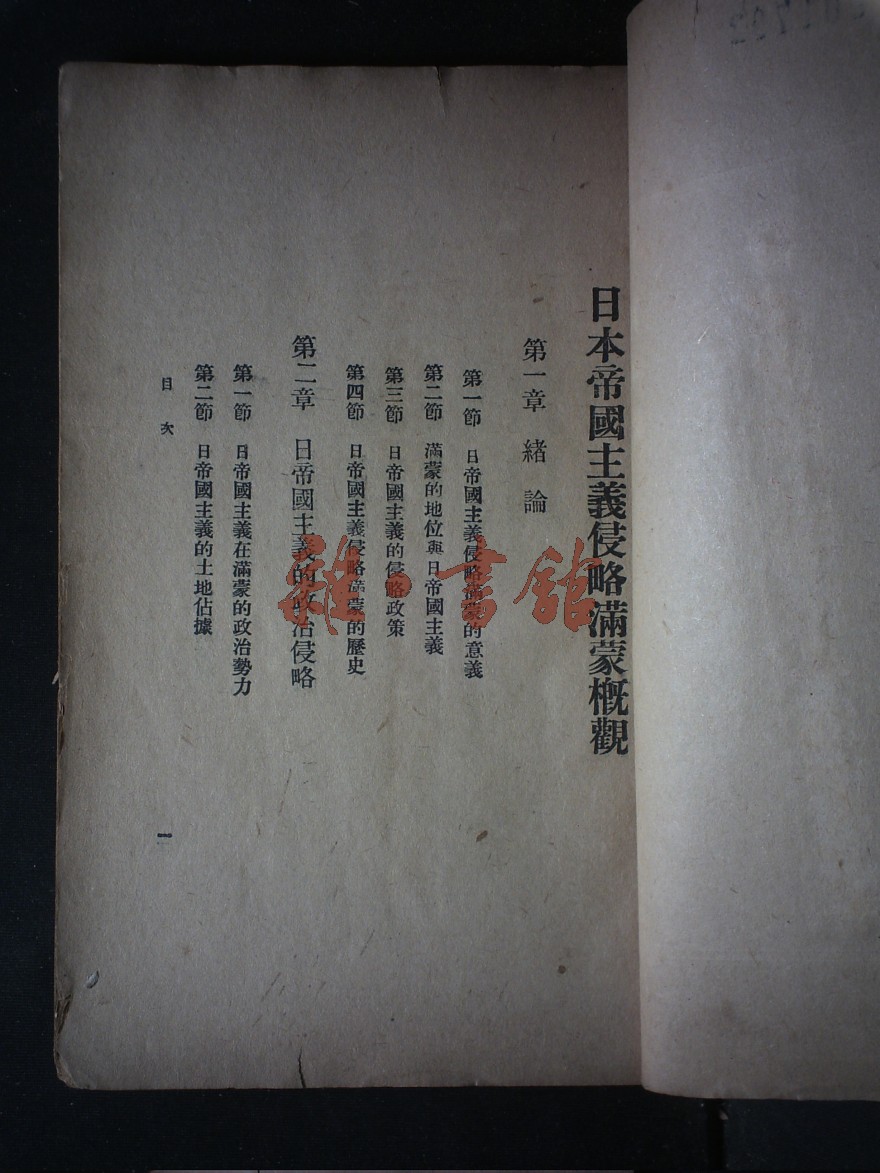 日本帝國主義侵略滿蒙概觀
第一章 緒論
第一節 日帝國主義侵略滿蒙的意義
第二節 滿蒙的地位與日帝國主義
第三節 日帝國主義的侵略政策
第四節 日帝國主義侵略滿蒙的歷史
第二章 日帝國主義的政治侵略
第一節 日帝國主義在滿蒙的政治勢力
第二節 日帝國主義的土地佔據
目次
一
雜·書館